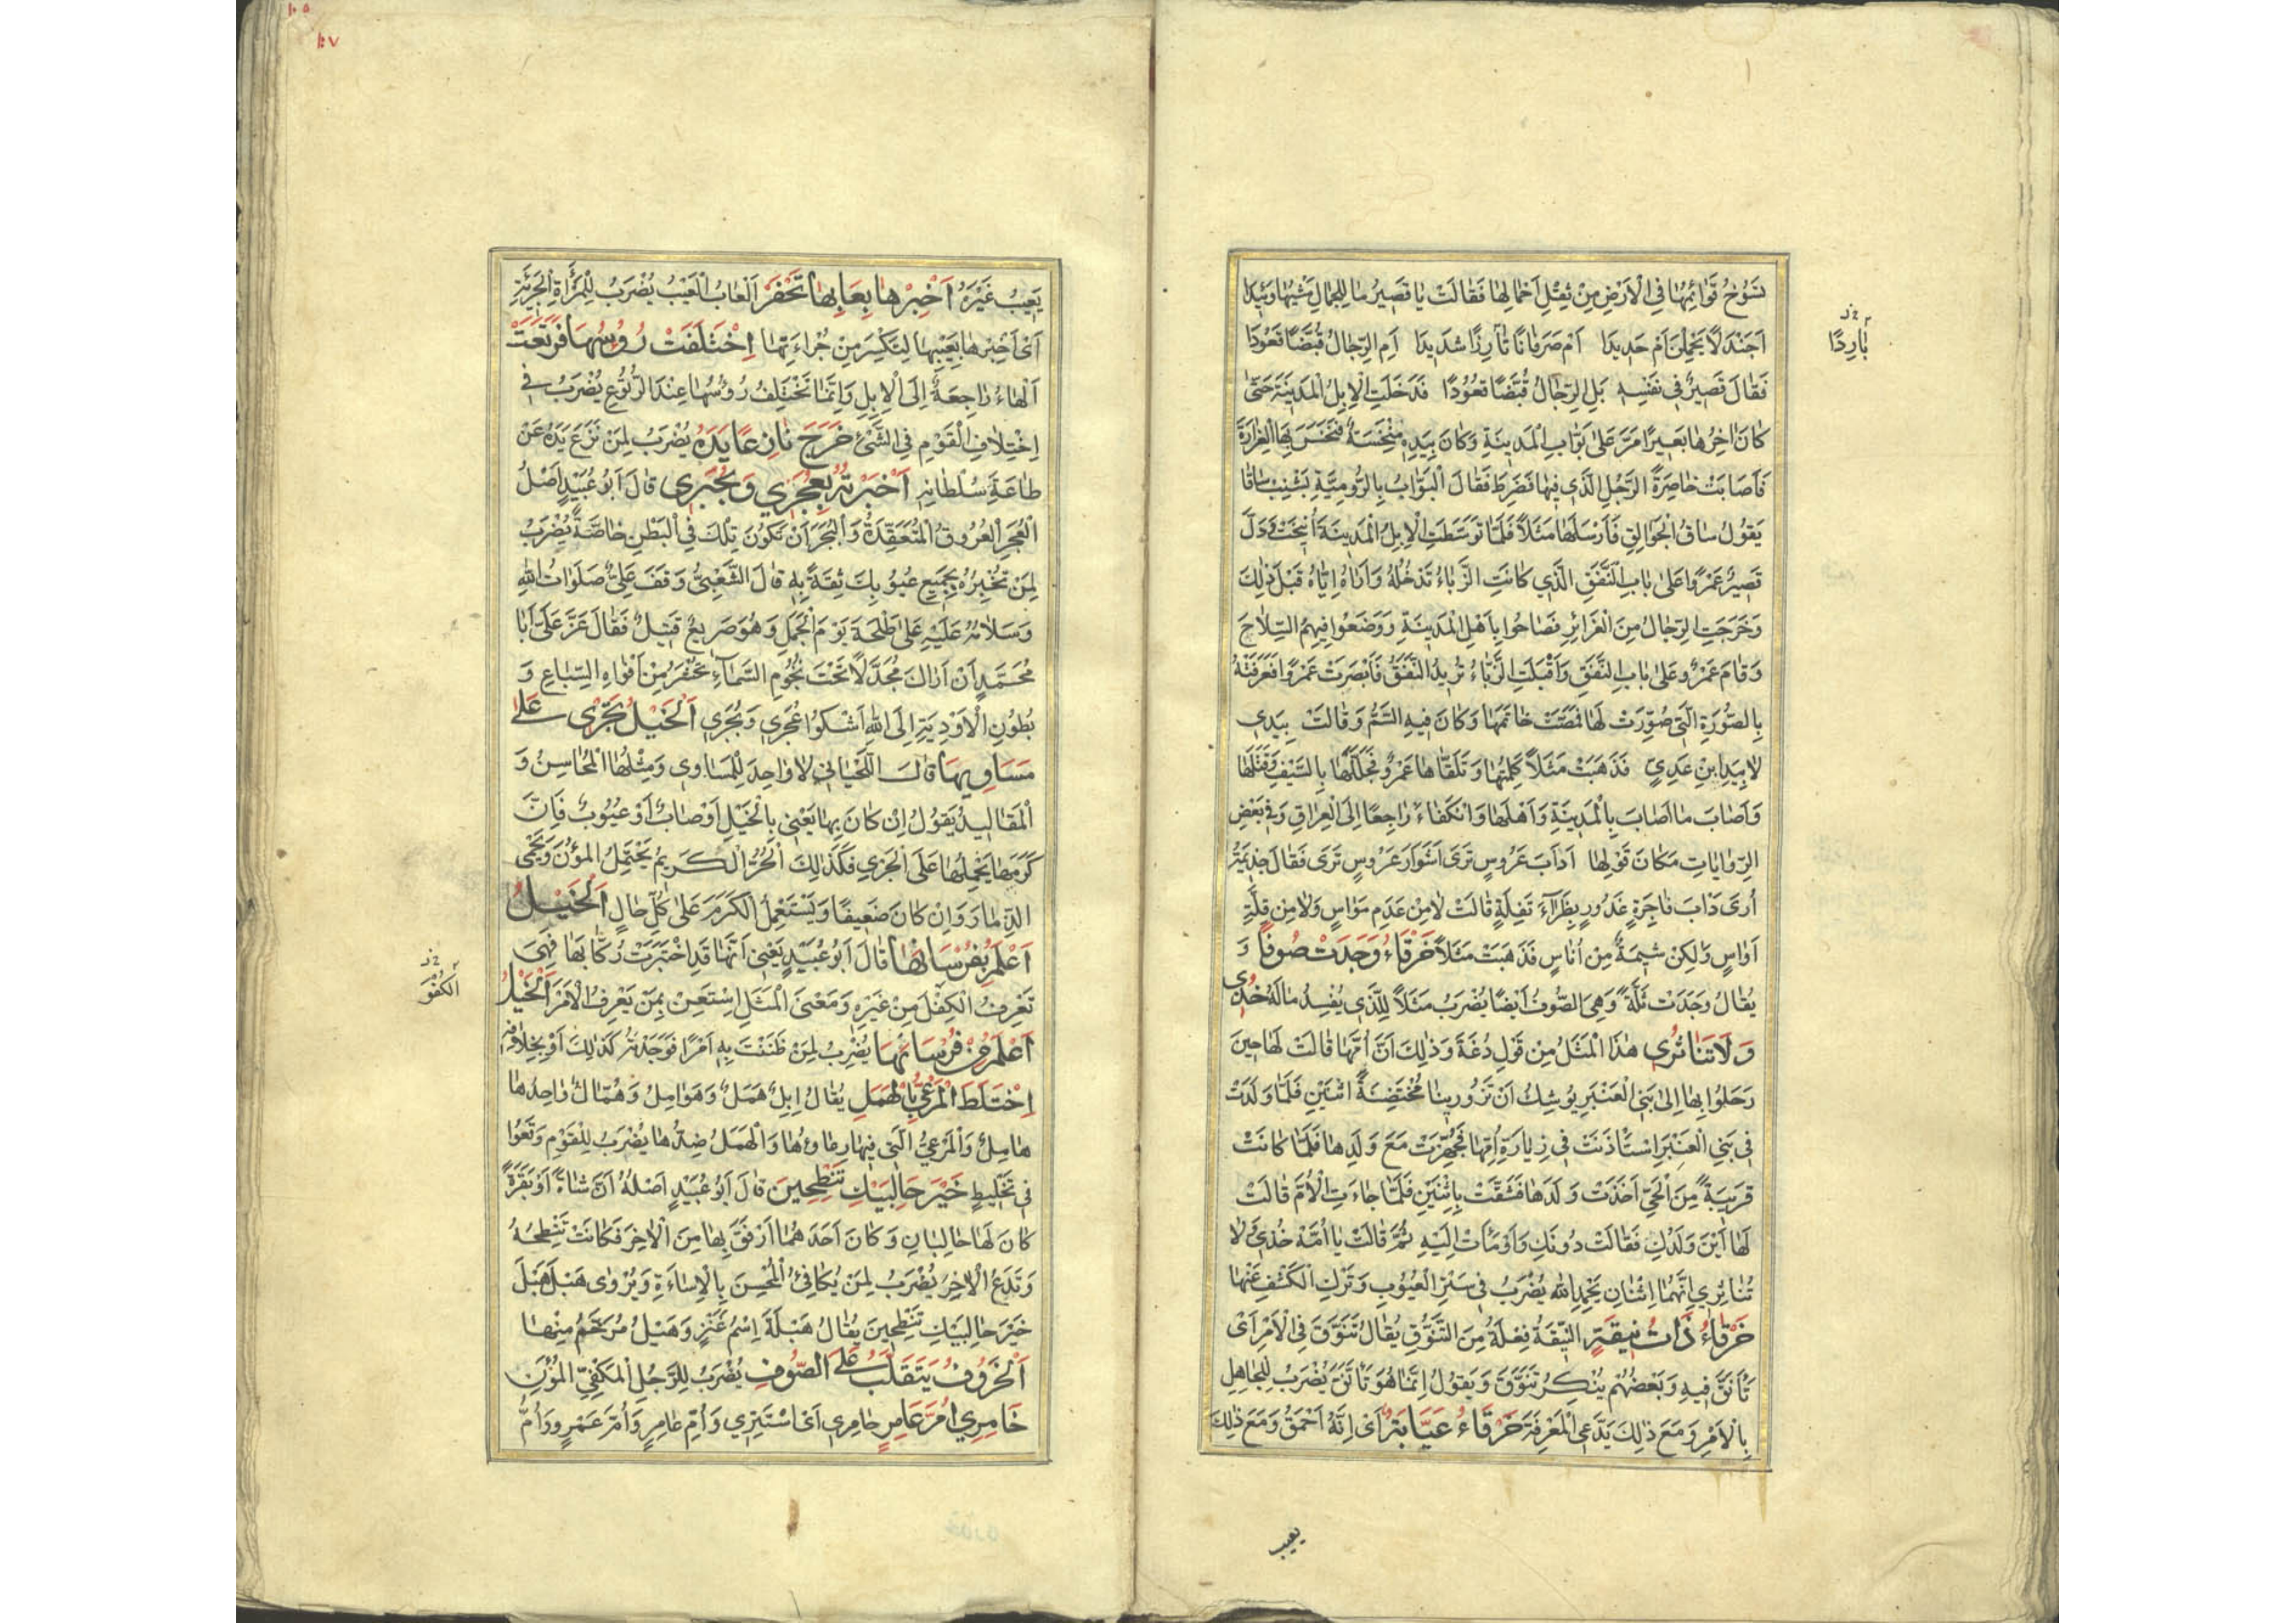 تَسُوخُ قَوَائِمُهَا فِي الْأَرْضِ مِنْ ثِقْلِ أَحْمَالِهَا فَقَالَتْ يَا قَصِيرُ مَا لِلْجِمَالِ مَشْيُهَا وَئِيدَا
أَجَنْدَلًا يَحْمِلْنَ أَمْ حَدِيدَا أَمْ صَرَفَانًا تَارِزًا شَدِيدَا أَمِ الرِّجَالُ قُبَّضًا قُعُودَا
بَارِدًا
فَقَالَ قَصِيرٌ فِي نَفْسِهِ بَلِ الرِّجَالُ قُبَّضًا قُعُودًا فَدَخَلَتِ الْإِبِلُ الْمَدِينَةَ حَتَّى
كَانَ اٰخِرُهَا بَعِيرًا مَرَّ عَلَى بَوَّابِ الْمَدِينَةِ وَكَانَ بِيَدِهِ مِنْخَسَةٌ فَنَخَسَ بِهَا الْغِرَارَةَ
فَأَصَابَتْ خَاصِرَةَ الرَّجُلِ الَّذِي فِيهَا فَضَرِطَ فَقَالَ الْبَوَّابُ بِالرُّومِيَّةِ بَشْنِبْ سَاقَا
يَقُولُ سَاقُ الْجُوَالِقِ فَأَرْسَلَهَا مَثَلًا فَلَمَّا تَوَسَّطَتِ الْإِبِلُ الْمَدِينَةَ أُنِيخَتْ وَدَلَّ
قَصِيرٌ عَمْرًوا عَلَى بَابِ النَّفَقِ الَّذِي كَانَتِ الزَّبَّاءُ تَدْخُلُهُ وَأَرَاهُ إِيَّاهُ قَبْلَ ذٰلِكَ
وَخَرَجَتِ الرِّجَالُ مِنَ الْغَرَائِرِ فَصَاحُوا بِأَهْلِ الْمَدِينَةِ وَوَضَعُوا فِيهِمُ السِّلَاحَ
وَقَامَ عَمْرٌو عَلَى بَابِ النَّفَقِ وَأَقْبَلَتِ الزَّبَّاءُ تُرِيدُ النَّفَقَ فَأَبْصَرَتْ عَمْرًوا فَعَرَفَتْهُ
بِالصُّورَةِ الَّتِي صُوِّرَتْ لَهَا فَمَصَّتْ خَاتَمَهَا وَكَانَ فِيهِ السَّمُّ وَقَالَتْ بِيَدِي
لَا بِيَدِ ابْنِ عَدِيٍّ فَذَهَبَتْ مَثَلًا كَلِمَتُهَا وَتَلَقَّاهَا عَمْرٌو فَجَلَّلَهَا بِالسَّيْفِ وَقَتَلَهَا
وَأَصَابَ مَا أَصَابَ بِالْمَدِينَةِ وَأَهْلِهَا وَانْكَفَاءَ رَاجِعًا إِلَى الْعِرَاقِ وَفِي بَعْضِ
الرِّوَايَاتِ مَكَانَ قَوْلِهَا أَدَأْبَ عَرُوسٍ تَرَى أَشَوَارَ عَرُوسٍ تَرَى فَقَالَ جَذِيمَةُ
أَرَى دَأْبَ فَاجِرَةٍ غَدُورٍ بَظْرَاءَ تَفِلَةٍ قَالَتْ لَا مِنْ عَدَمِ مَوَاسٍ وَلَا مِنْ قِلَّةِ
أَوَاسٍ وَلٰكِنْ شِيمَةٌ مِنْ أُنَاسٍ فَذَهَبَتْ مَثَلًا خَرْقَاءُ وَجَدَتْ صُوفًا وَ
يُقَالُ وَجَدَتْ ثَلَّةً وَهِيَ الصُّوفُ أَيْضًا يُضْرَبُ مَثَلًا لِلَّذِي يُفْسِدُ مَالَهُ خُذِي
وَلَا تُنَاثِرِي هٰذَا الْمَثَلُ مِنْ قَوْلِ دُغَةَ وَذٰلِكَ أَنَّ أُمَّهَا قَالَتْ لَهَا حِينَ
رَحَلُوا بِهَا إِلَى بَنِي الْعَنْبَرِ يُوشِكُ أَنْ تَزُورِينَا مُحْتَضِنَةً اثْنَيْنِ فَلَمَّا وَلَدَتْ
فِي بَنِي الْعَنْبَرِ اسْتَأْذَنَتْ فِي زِيَارَةِ أُمِّهَا فَجُهِّزَتْ مَعَ وَلَدِهَا فَلَمَّا كَانَتْ
قَرِيبَةً مِنَ الْحَيِّ أَخَذَتْ وَلَدَهَا فَشَقَّتْ بِاثْنَيْنِ فَلَمَّا جَاءَتِ الْأُمَّ قَالَتْ
لَهَا أَيْنَ وَلَدُكِ فَقَالَتْ دُونَكِ وَأَوْمَأَتْ إِلَيْهِ ثُمَّ قَالَتْ يَا أُمَّهْ خُذِي لَا
تُنَاثِرِي إِنَّهُمَا اثْنَانِ بِحَمْدِ اللهِ يُضْرَبُ فِي سَتْرِ الْعُيُوبِ وَتَرْكِ الْكَشْفِ عَنْهَا
خَرْقَاءُ ذَاتُ نِيقَةٍ النِّيقَةُ فِعْلَةٌ مِنَ التَّنَوُّقِ يُقَالُ تَنَوَّقَ فِي الْأَمْرِ أَيْ
تَأَنَّقَ فِيهِ وَبَعْضُهُمْ يُنْكِرُ تَنَوَّقَ وَيَقُولُ إِنَّمَا هُوَ تَأَنَّقَ يُضْرَبُ لِلْجَاهِلِ
بِالْأَمْرِ وَمَعَ ذٰلِكَ يَدَّعِي الْمَعْرِفَةَ خَرْقَاءُ عَيَّابَةٌ أَيْ إِنَّهُ أَحْمَقُ وَمَعَ ذٰلِكَ
يعيب
١٠٥
١٠٧
يَعِيبُ غَيْرَهُ أَخْبِرْهَا بِعَابِهَا تَخْفَرْ اَلْعَابُ الْعَيْبُ يُضْرَبُ لِلْمَرْأَةِ الْجَرِيئَةِ
أَيْ أَخْبِرْهَا بِعَيْبِهَا لِتَكْسِرَ مِنْ جُرْاءَتِهَا اِخْتَلَفَتْ رُؤُسُهَا فَرَتَعَتْ
اَلْهَاءُ رَاجِعَةٌ إِلَى الْإِبِلِ وَإِنَّمَا تَخْتَلِفُ رُؤُسُهَا عِنْدَ الرُّتُوعِ يُضْرَبُ فِي
اخْتِلَافِ الْقَوْمِ فِي الشَّيْءِ خَرَجَ نَازِعًا يَدَهُ يُضْرَبُ لِمَنْ نَزَعَ يَدَهُ عَنْ
طَاعَةِ سُلْطَانِهِ أَخْبَرْتُهُ بِعُجَرِي وَبُجَرِي قَالَ أَبُو عُبَيْدٍ أَصْلُ
الْعُجَرِ الْعُرُوقُ الْمُتَعَقِّدَةُ وَالْبُجَرُ أَنْ تَكُونَ تِلْكَ فِي الْبَطْنِ خَاصَّةً يُضْرَبُ
لِمَنْ تُخْبِرُهُ بِجَمِيعِ عُيُوبِكَ ثِقَةً بِهِ قَالَ الشَّعْبِيُّ وَقَفَ عَلِيٌّ صَلَوَاتُ اللهِ
وَسَلَامُهُ عَلَيْهِ عَلَى طَلْحَةَ يَوْمَ الْجَمَلِ وَهُوَ صَرِيعٌ قَتِيلٌ فَقَالَ عَزَّ عَلَيَّ أَبَا
مُحَمَّدٍ أَنْ أَرَاكَ مُجَدَّلًا تَحْتَ نُجُومِ السَّمَاءِ تُحْفَرُ مِنْ أَفْوَاهِ السِّبَاعِ وَ
بُطُونِ الْأَوْدِيَةِ إِلَى اللهِ أَشْكُوا عُجَرِي وَبُجَرِي اَلْخَيْلُ تَجْرِي عَلَى
مَسَاوِيهَا قَالَ اللِّحْيَانِي لَا وَاحِدَ لِلْمَسَاوِي وَمِثْلُهَا الْمَحَاسِنُ وَ
الْمَقَالِيدُ يَقُولُ إِنْ كَانَ بِهَا يَعْنِي بِالْخَيْلِ أَوْصَابٌ أَوْ عُيُوبٌ فَإِنَّ
كَرَمَهَا يَحْمِلُهَا عَلَى الْجَرْيِ فَكَذٰلِكَ الْحُرُّ الْكَرِيمُ يَحْتَمِلُ الْمُؤَنَ وَيَحْمِي
الذِّمَارَ وَإِنْ كَانَ ضَعِيفًا وَيَسْتَعْمِلُ الْكَرَمَ عَلَى كُلِّ حَالٍ اَلْخَيْلُ
أَعْلَمُ بِفُرْسَانِهَا قَالَ أَبُو عُبَيْدٍ يَعْنِي أَنَّهَا قَدِ اخْتَبَرَتْ رُكَّابَهَا فَهِيَ
تَعْرِفُ الْكِفْلَ مِنْ غَيْرِهِ وَمَعْنَى الْمَثَلِ اِسْتَعِنْ بِمَنْ يَعْرِفُ الْأَمْرَ اَلْخَيْلُ
الْكُفْوَ
أَعْلَمُ مِنْ فُرْسَانِهَا يُضْرَبُ لِمَنْ ظَنَنْتَ بِهِ أَمْرًا فَوَجَدْتَهُ كَذٰلِكَ أَوْ بِخِلَافِهِ
اِخْتَلَطَ الْمَرْعِيُّ بِالْهَمَلِ يُقَالُ إِبِلٌ هَمَلٌ وَهَوَامِلُ وَهُمَّالٌ وَاحِدُهَا
هَامِلٌ وَالْمَرْعِيُّ الَّتِي فِيهَا رِعَاؤُهَا وَالْهَمَلُ ضِدُّهَا يُضْرَبُ لِلْقَوْمِ وَقَعُوا
فِي تَخْلِيطٍ خَيْرَ حَالِبَيْكِ تَنْطَحِينَ قَالَ أَبُو عُبَيْدٍ أَصْلُهُ أَنَّ شَاةً أَوْ بَقَرَةً
كَانَ لَهَا حَالِبَانِ وَكَانَ أَحَدُهُمَا أَرْفَقَ بِهَا مِنَ الْاٰخِرِ فَكَانَتْ تَنْطِحُهُ
وَتَدَعُ الْاٰخِرَ يُضْرَبُ لِمَنْ يُكَافِئُ الْمُحْسِنَ بِالْإِسَاءَةِ وَيُرْوٰى هَبْلَ هَبْلَ
خَيْرَ حَالِبَيْكِ تَنْطَحِينَ يُقَالُ هَبْلَةُ اِسْمُ عَنْزٍ وَهَبْلُ مُرَخَّمٌ مِنْهَا
اَلْخَرُوفُ يَتَقَلَّبُ عَلَى الصُّوفِ يُضْرَبُ لِلرَّجُلِ الْمَكْفِيِّ الْمُؤَنِ
خَامِرِي أُمَّ عَامِرٍ خَامِرِي أَيْ اسْتَتِرِي وَأُمُّ عَامِرٍ وَأُمُّ عَمْرٍو وَأُمُّ